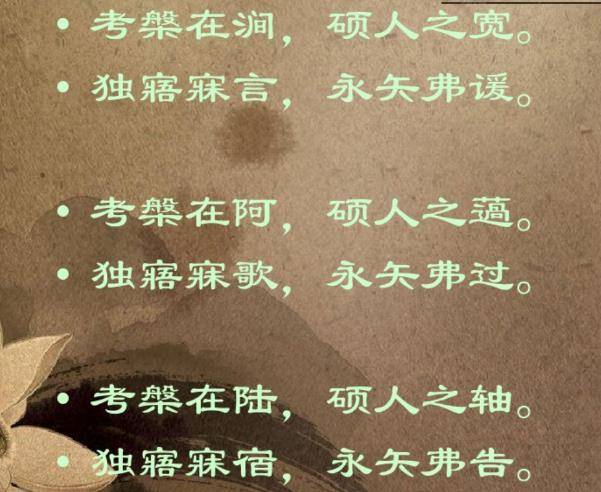 • 考槃在涧，硕人之宽。
• 独寤寐言，永矢弗谖。
• 考槃在阿，硕人之薖。
• 独寤寐歌，永矢弗过。
• 考槃在陆，硕人之轴。
• 独寤寐宿，永矢弗告。